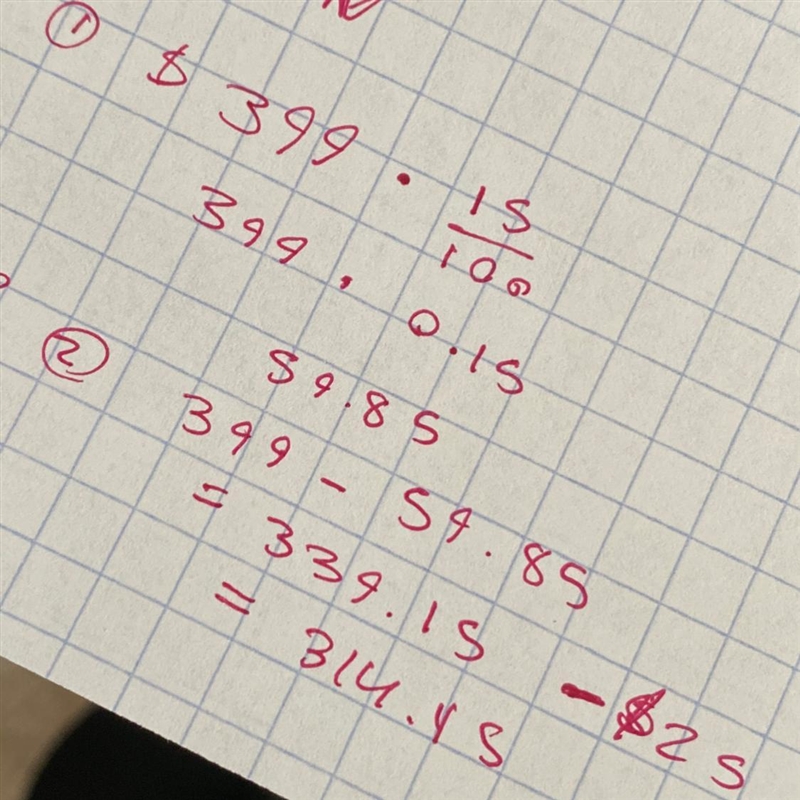 ① $ 399 · 15/100
399 · 0.15
59.85
② 399 - 59.85
= 339.15 - 25
= 314.15